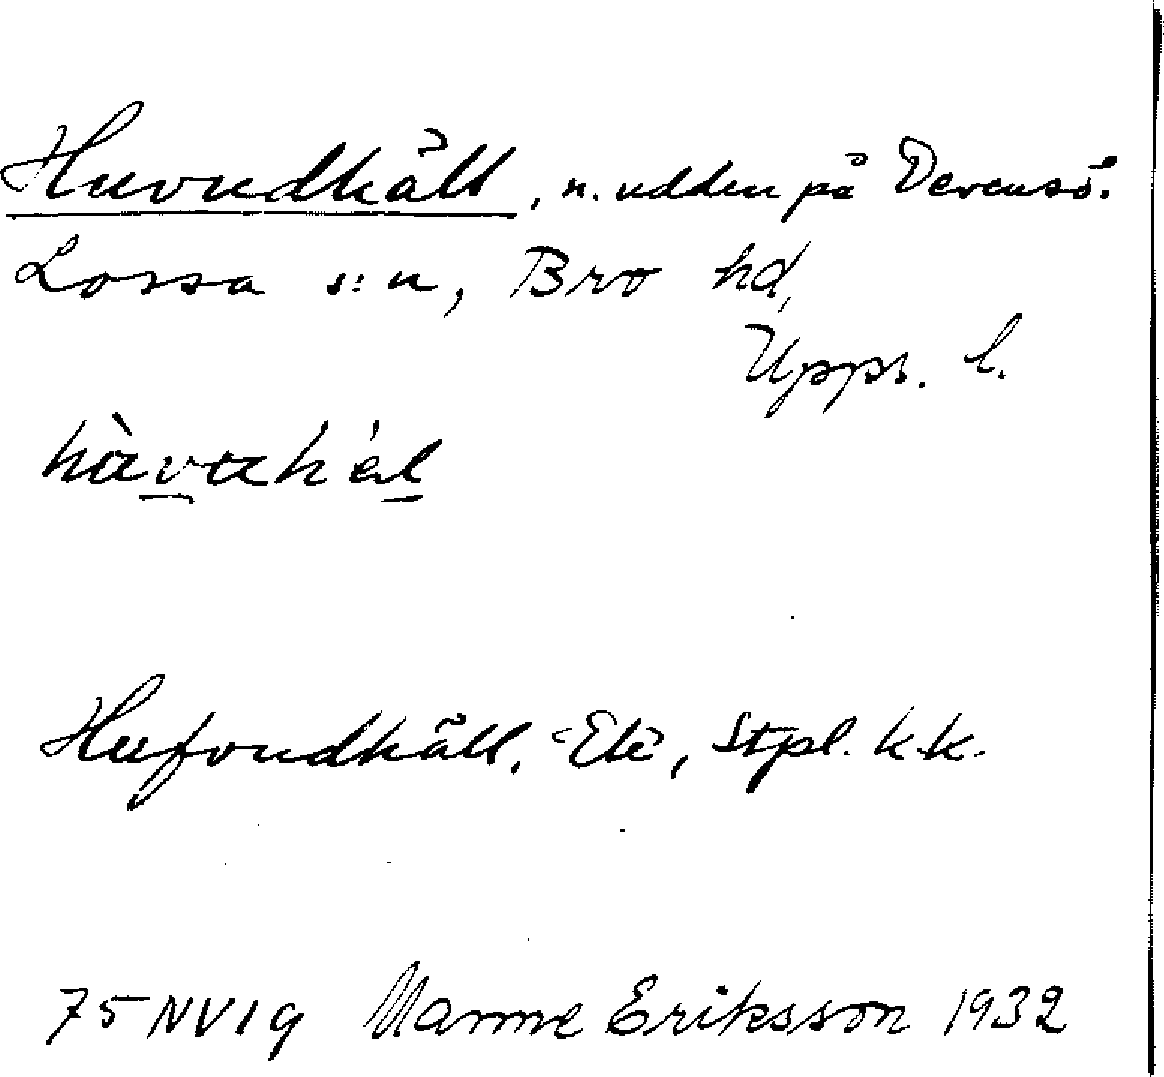 Huvudhäll, n. udden på Dävensö.
Lossa s:n, Bro hd,
Upps. l.
hùvuhäl
Hufvudhäll, Ek, Stpl. k.k.
75 NV 1 g Manne Eriksson 1932